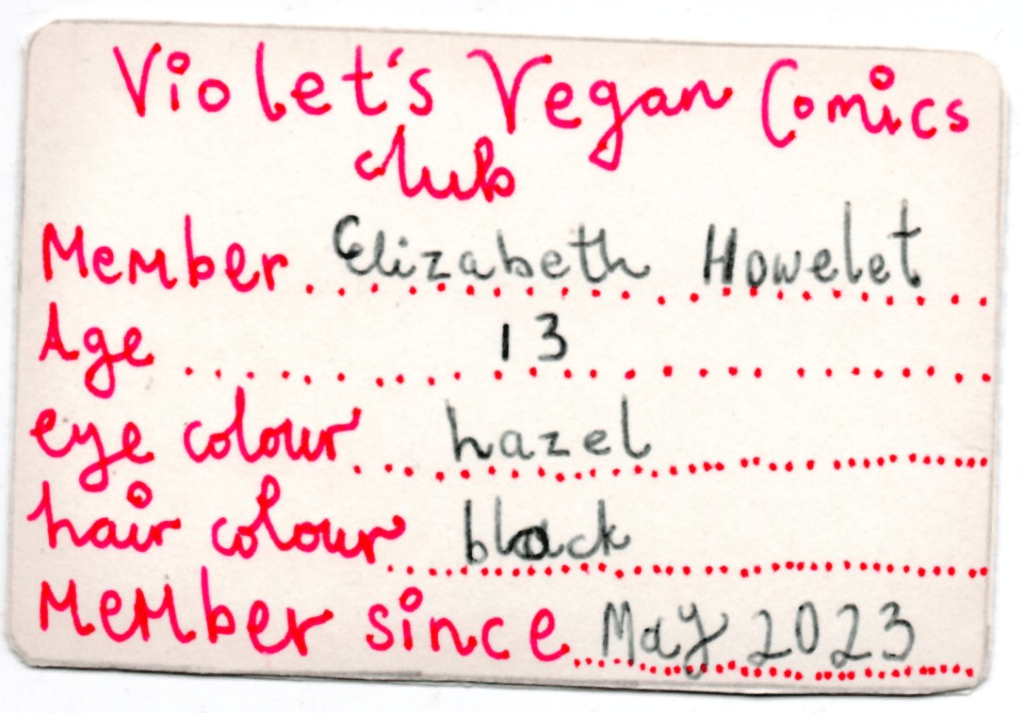 Violet's Vegan Comics
club
Member Elizabeth Howelet
Age 13
eye colour hazel
hair colour black
Member since May 2023